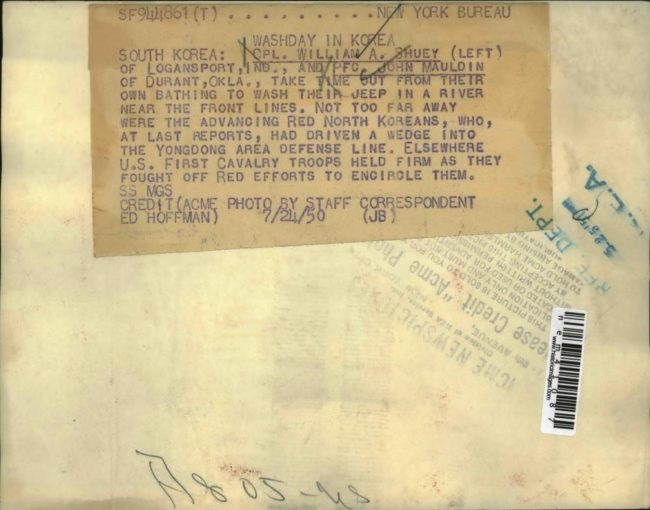 SF944861(T) . . . . . . . . . .NEW YORK BUREAU
WASHDAY IN KOREA
SOUTH KOREA: CPL. WILLIAM A. SHUEY (LEFT)
OF LOGANSPORT, IND., AND PFC. JOHN MAULDIN
OF DURANT, OKLA., TAKE TIME OUT FROM THEIR
OWN BATHING TO WASH THEIR JEEP IN A RIVER
NEAR THE FRONT LINES. NOT TOO FAR AWAY
WERE THE ADVANCING RED NORTH KOREANS, WHO,
AT LAST REPORTS, HAD DRIVEN A WEDGE INTO
THE YONGDONG AREA DEFENSE LINE. ELSEWHERE
U.S. FIRST CAVALRY TROOPS HELD FIRM AS THEY
FOUGHT OFF RED EFFORTS TO ENCIRCLE THEM.
SS MGS
CREDIT (ACME PHOTO BY STAFF CORRESPONDENT
ED HOFFMAN) 7/24/50 (JB)
REF. DEPT.
N.E.A.
THIS PICTURE IS SOLD TO YOU
Credit "Acme
ACME NEWSPICTURES
AVENUE,
nem44087
A805-US